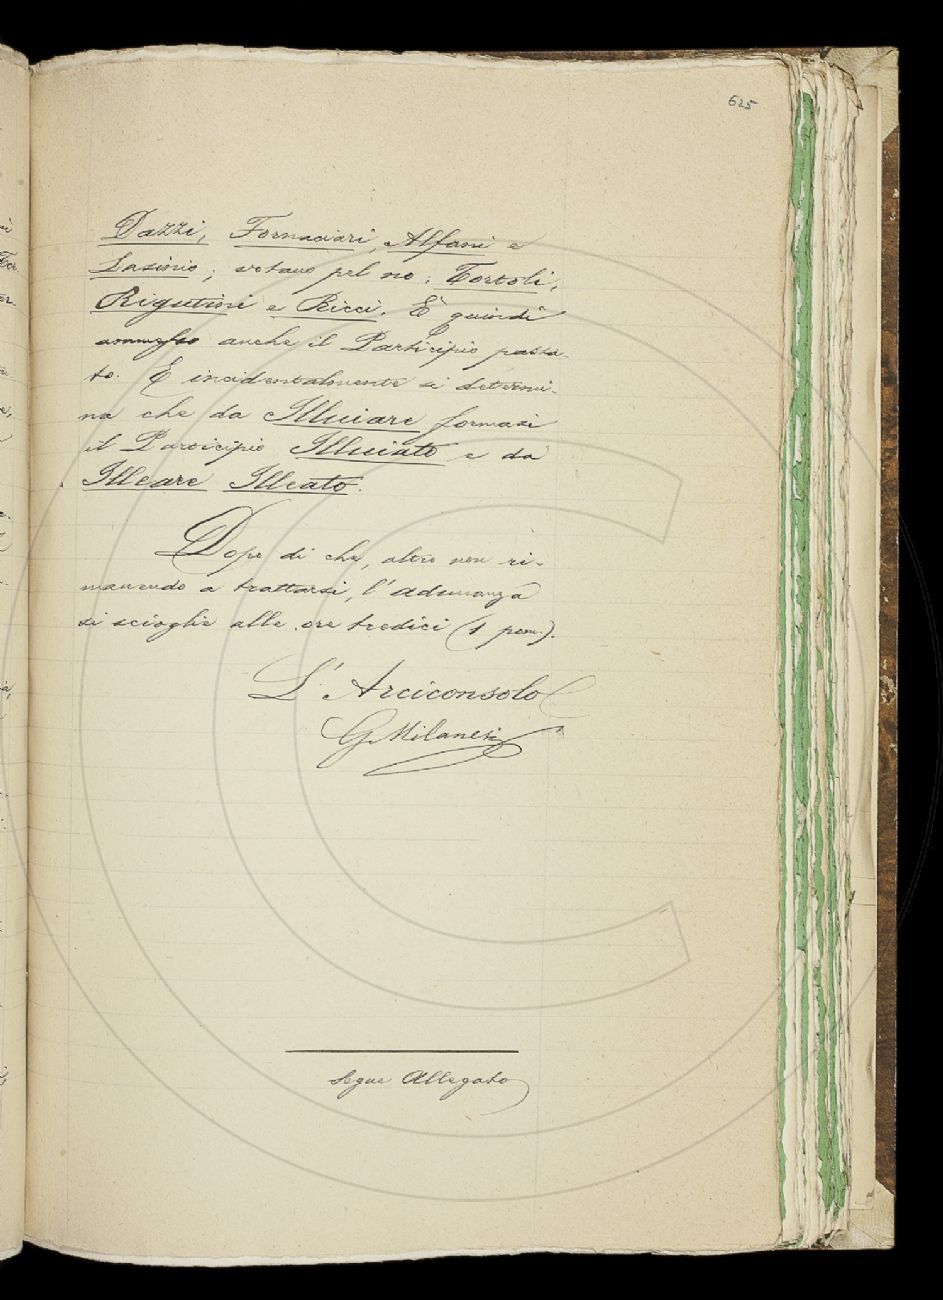 625
Dazzi, Fornaciari, Alfani e
Lasinio; votano pel no: Tortoli,
Rigutini e Ricci. È quindi
ammesso anche il Participio passa-
to. E incidentalmente si determi-
na che da Illuiare formasi
il Participio Illuiato e da
Illeare Illeato.
Dopo di che, altro non ri-
manendo a trattarsi, l'adunanza
si scioglie alle ore tredici (1 pom.).
L'Arciconsolo
G. Milanesi
Segue Allegato